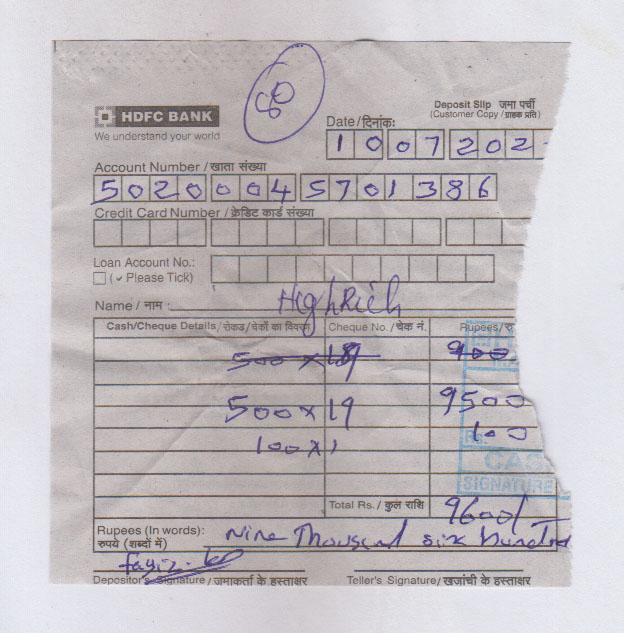 60
HDFC BANK
We understand your world
Deposit Slip जमा पर्ची
(Customer Copy / ग्राहक प्रति)
Date/दिनांक:
1 0 0 7 2 0 2
Account Number / खाता संख्या
5 0 2 0 0 0 4 5 7 0 1 3 8 6
Credit Card Number / क्रेडिट कार्ड संख्या
Loan Account No.:
(✓ Please Tick)
Name / नाम : HighRich
Cash/Cheque Details / रोकड/चेकों का विवरण Cheque No. / चेक नं. Rupees/रु
500 x 19 900
500 x 19 9500
100 x 1 100
Rs.
CAS
SIGNATURE
Total Rs. / कुल राशि 9600/
Rupees (In words): Nine Thousand six hundred
रुपये (शब्दों में)
Depositor's Signature / जमाकर्ता के हस्ताक्षर Teller's Signature / खजांची के हस्ताक्षर